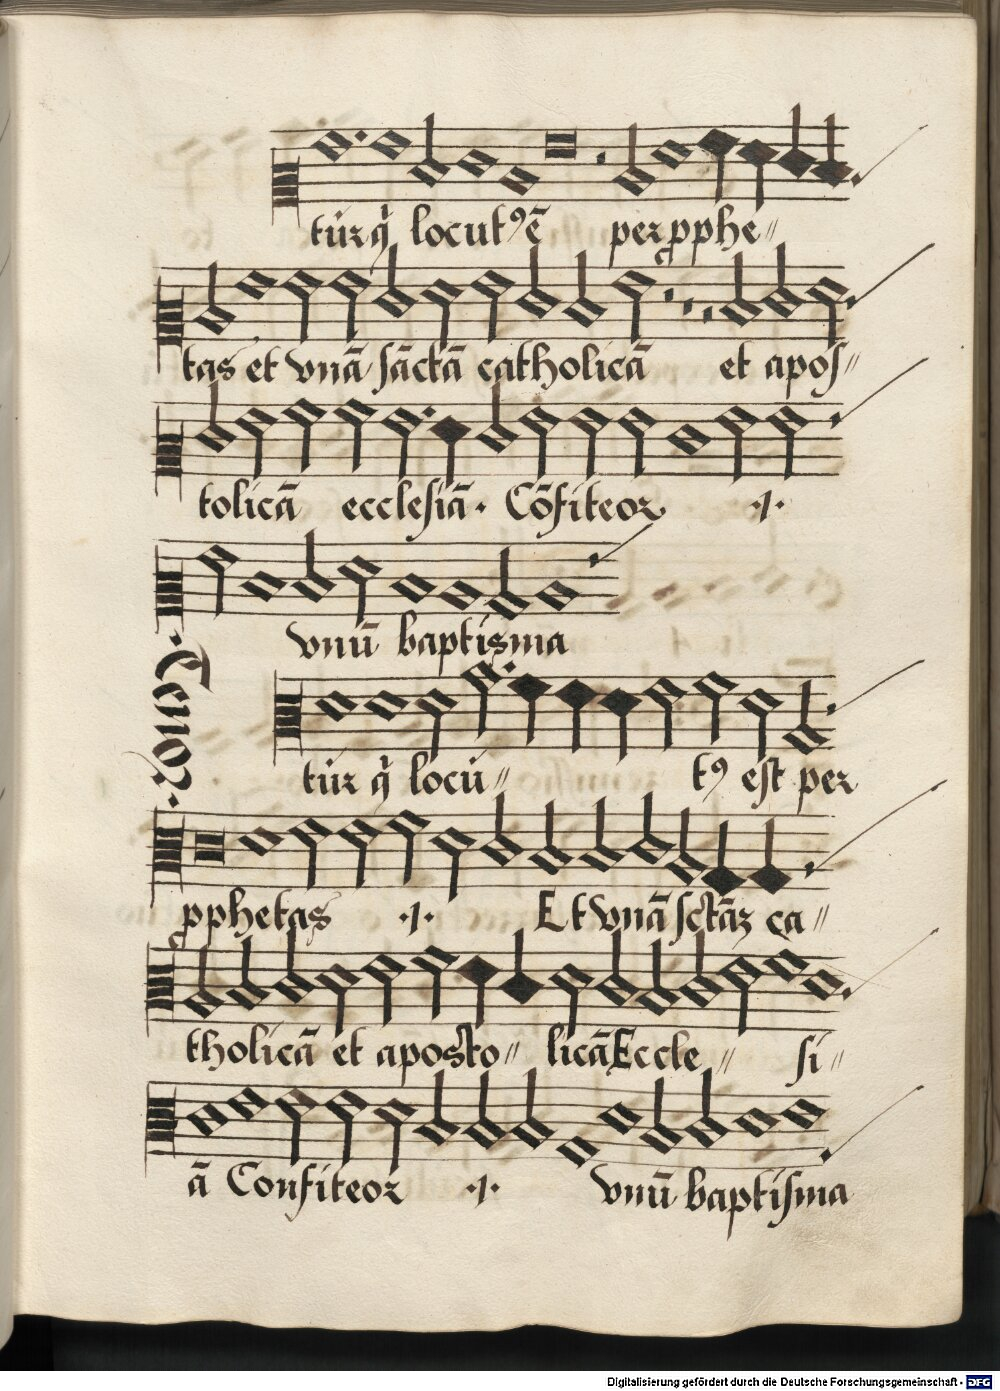 tur q̃ locutꝰ ẽ per ꝓphe〃
tas et vnã sãctã catholicã et apos〃
tolicã ecclesiã. Cõfiteor ·1·
vnũ baptisma
·Tenor·
tur q̃ locu〃 tꝰ est per
ꝓphetas ·1· Et vnã sctãz ca〃
tholicã et aposto〃 licã Eccle〃 si〃
ã Confiteor ·1· vnũ baptisma
Digitalisierung gefördert durch die Deutsche Forschungsgemeinschaft - DFG